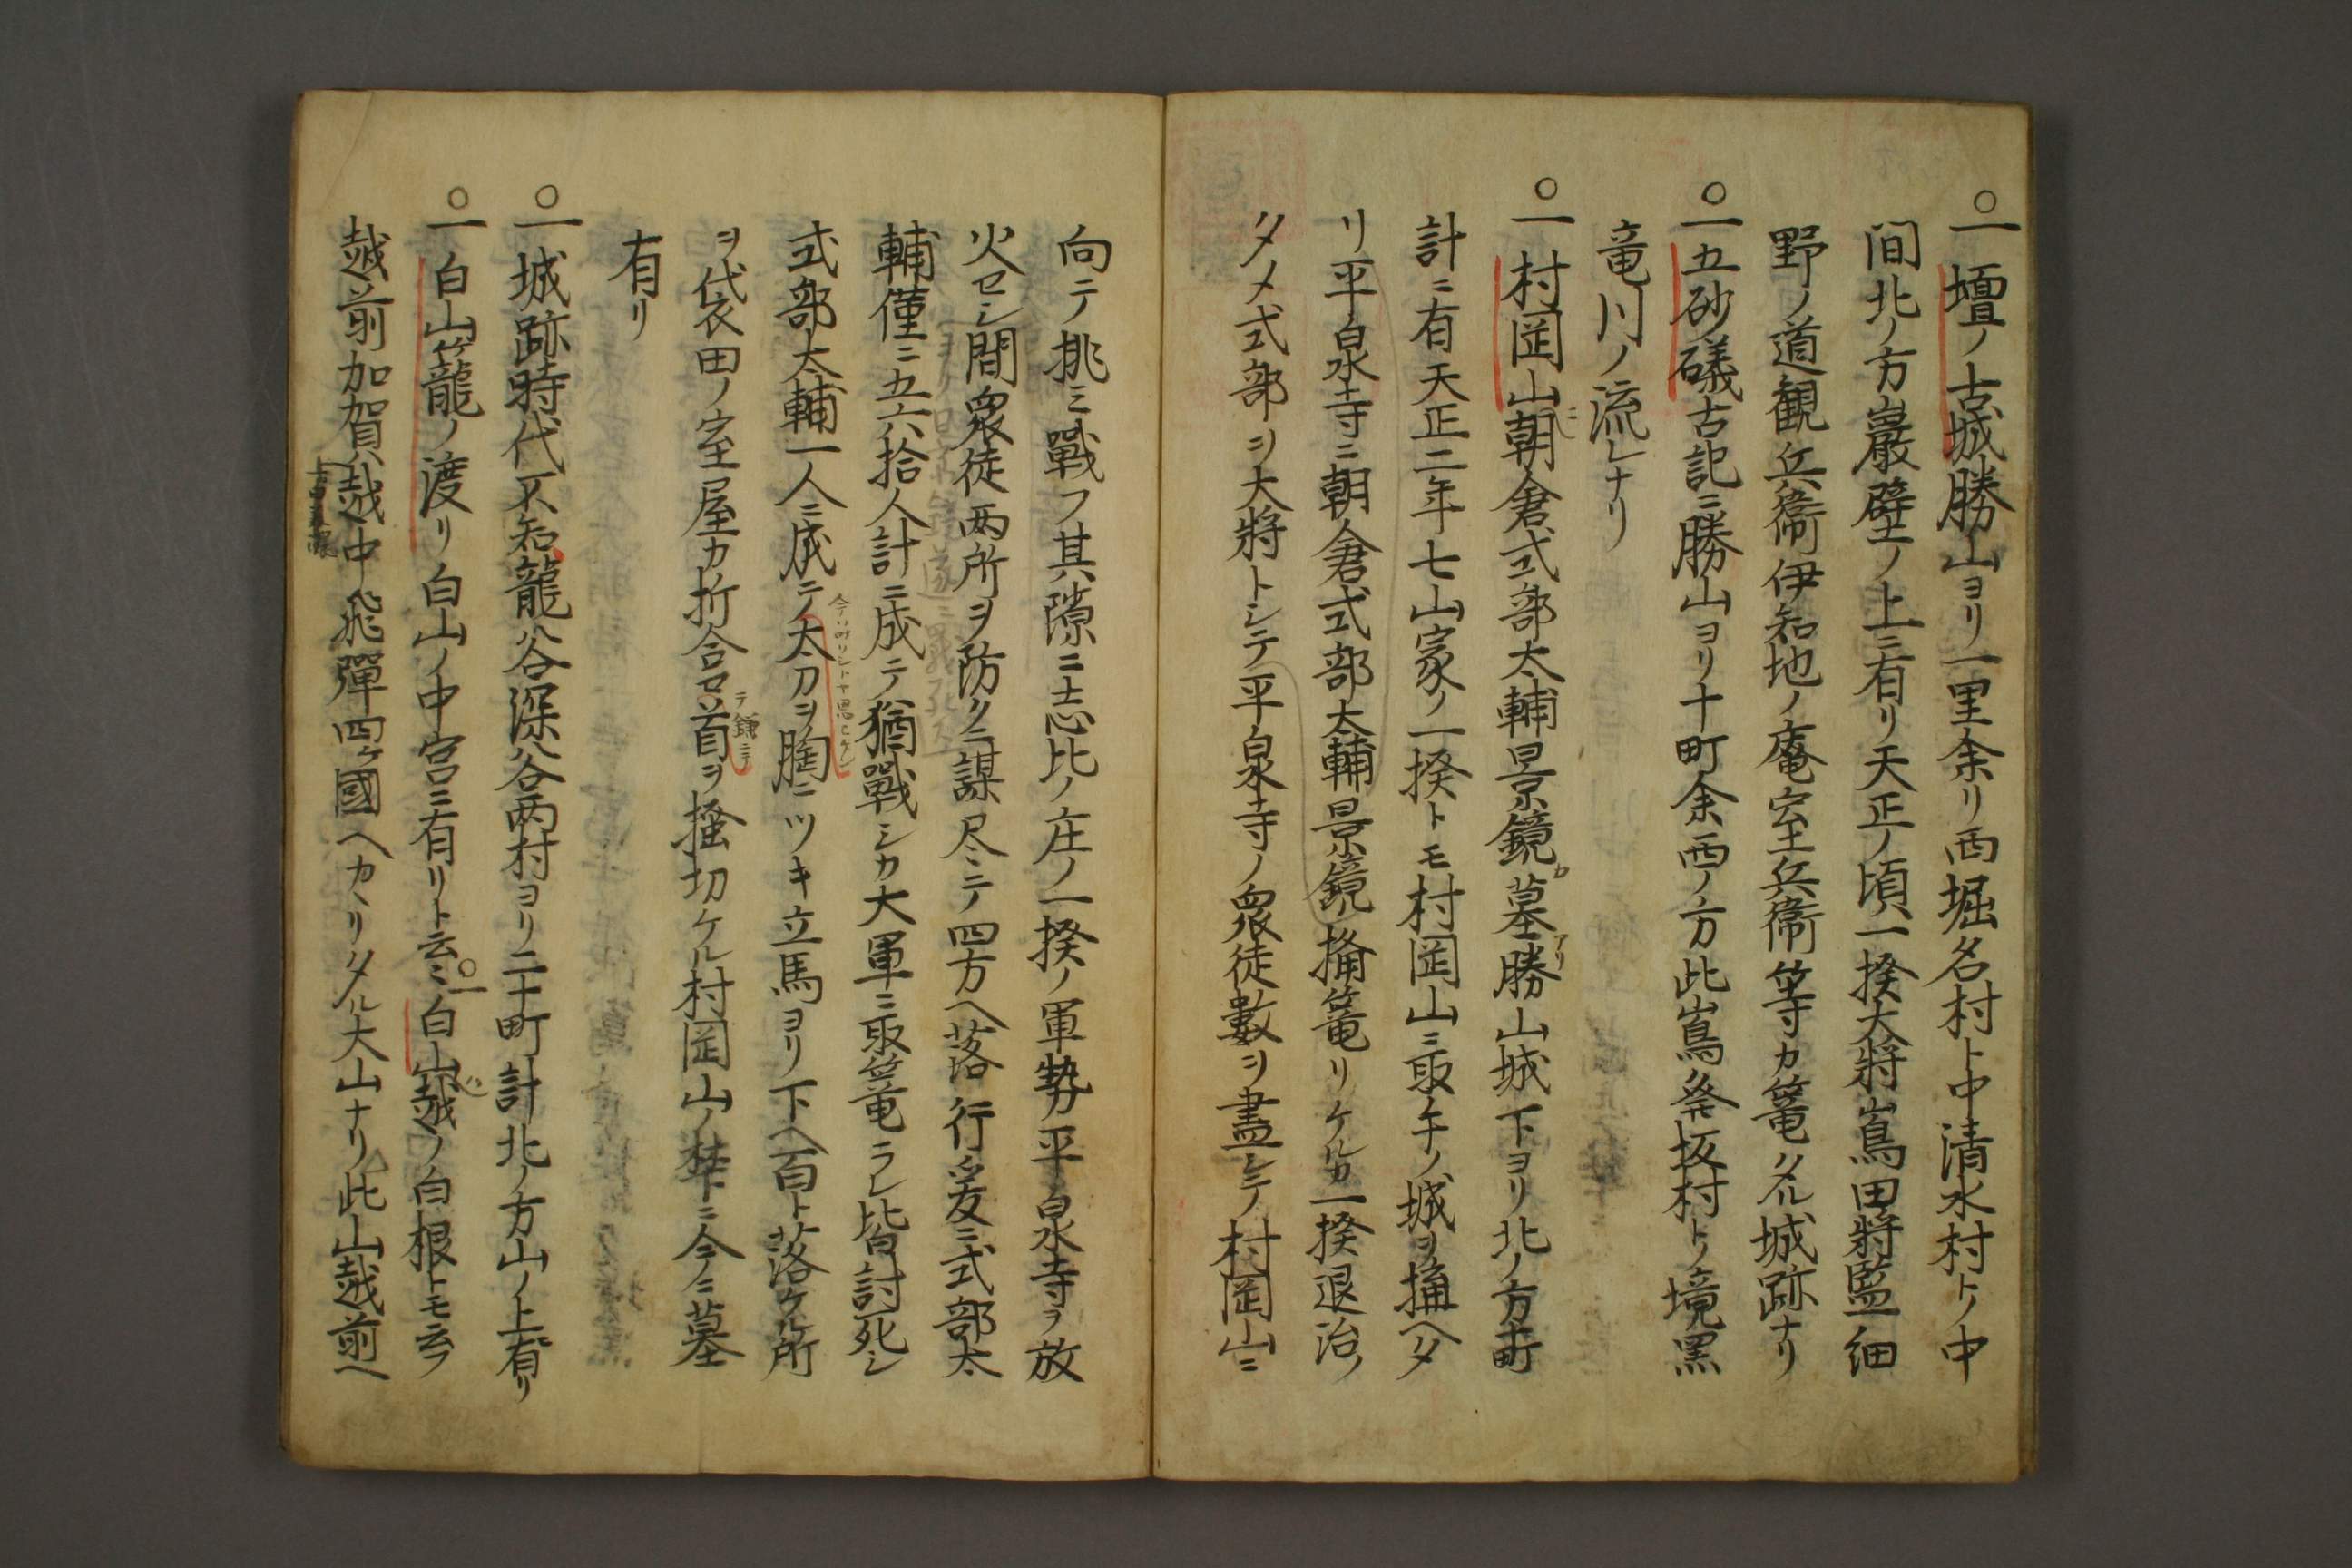 ○一壇ノ古城勝山ヨリ一里余リ西堀名村ト中清水村トノ中
間北ノ方巖壁ノ上ニ有リ天正ノ頃一揆大将嶌田将監細
野ノ道観兵衛伊知地ノ庵室兵衛等カ篭タル城跡ナリ
○一五砂礒古記ニ勝山ヨリ十町余西ノ方此嶌発坂村トノ境黒
竜川ノ流レナリ
○一村岡山ニ朝倉式部太輔景鏡カ墓アリ勝山城下ヨリ北ノ方壱町
計ニ有天正二年七山家ノ一揆トモ村岡山ニ取手ノ城ヲ搆ヘタ
リ平泉寺ニ朝倉式部太輔景鏡搆篭リケルカ一揆退治ノ
タメ式部ヲ大将トシテ平泉寺ノ衆徒數ヲ盡シテ村岡山ニ
向テ挑ミ戰フ其隙ニ志比ノ庄ノ一揆ノ軍勢平泉寺ヲ放
火セシ間衆徒两所ヲ防クニ謀尽ニテ四方ヘ落行爰ニ式部太
輔僅ニ五六拾人計ニ成テ猶戰シカ大軍ニ取篭ラレ皆討死シ
式部太輔一人ニ成テ太刀ヲ胸ニツキ立馬ヨリ下ヘ百ト落ケル所
ヲ袋田ノ室屋カ折合セテ鎌ニテ首ヲ掻切ケル村岡山ノ梺ニ今ニ墓
有リ
○一城跡時代不知龍谷深谷两村ヨリ二十町計北ノ方山ノ上有リ
○一白山ケ龍ノ渡リ白山ノ中宮ニ有リト云ミ○一白山ハ越ノ白根トモ云フ
越前加賀越中飛彈四ケ國ヘカヽリタル大山ナリ此山越前ヘ